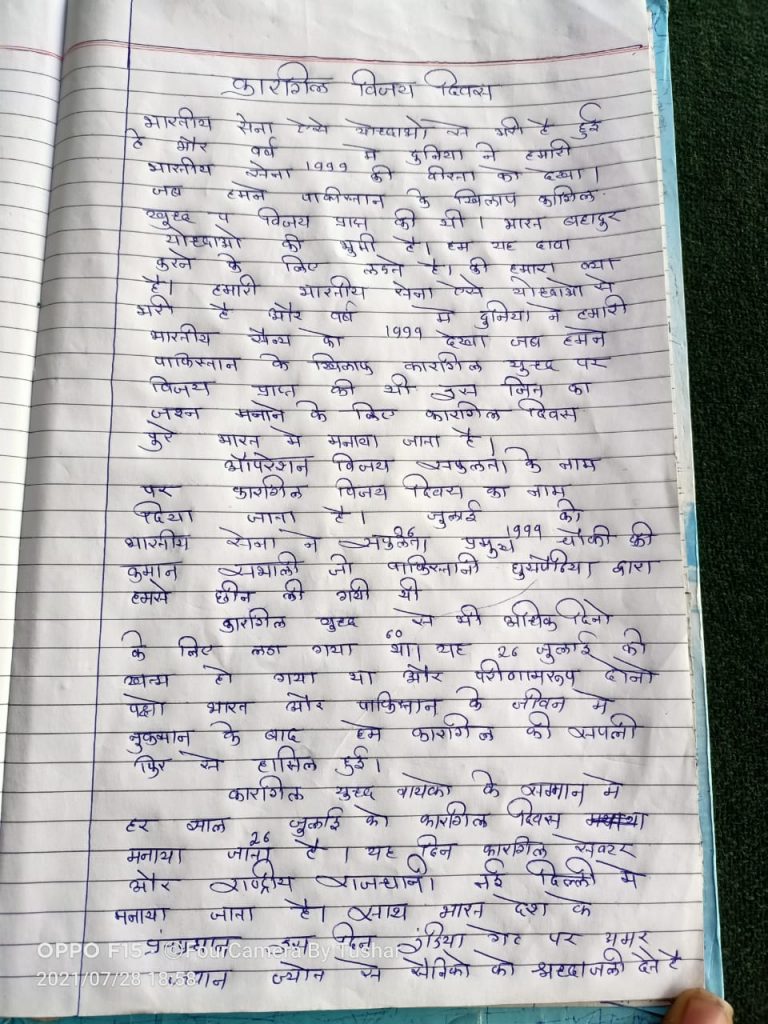 कारगिल विजय दिवस
भारतीय सेना ऐसे योध्दाओ से भरी है हुई
है और वर्ष में दुनिया ने हमारी
भारतीय सेना 1999 की वीरता को देखा।
जब हमने पाकिस्तान के खिलाप कागिल
युध्द प विजय प्राप्त की थी। भारत बहादुर
योध्दाओ की भुमी है। हम यह दावा
करने के लिए लडते है। की हमारा क्या
है। हमारी भारतीय सेना ऐसे योध्दाओ से
भरी है और वर्ष में दुनिया ने हमारी
भारतीय सैन्य को 1999 देखा जब हमने
पाकिस्तान के खिलाफ कारगिल युध्द पर
विजय प्राप्त की थी उस जित का
जश्न मनाने के लिए कारगिल दिवस
पुरे भारत मे मनाया जाता है।
ऑपरेशन विजय सफुलता के नाम
पर कारगिल विजय दिवस का नाम
दिया जाता है। जुलाई को
भारतीय सेना ने 26 सफुलता प्रमुख 1999 चौकी की
कमान सभाली जो पाकिस्तानी घुसपेठिया द्वारा
हमसे छीन ली गयी थी
कारगिल युध्द से भी अधिक दिनो
के लिए लडा गया 60 था। यह 26 जुलाई को
खत्म हो गया था और परीणामरूप दोनो
पक्षो भारत और पाकिस्तान के जीवन मे
नुकसान के बाद हम कारगिल की सपली
फिर से हासिल हुई।
कारगिल युध्द के सम्मान मे
हर साल जुलाई को कारगिल दिवस
मनाया जाता 26 है। यह दिन कारगिल सेक्टर
और राष्ट्रीय राजधानी नई दिल्ली मे
मनाया जाता है। साथ भारत देश के
इस दिन इंडिया गेट पर अमर
ज्योन से सैनिको को श्रध्दाजली देते है
OPPO F15 FourCamera By Tushar
2021/07/28 18:58